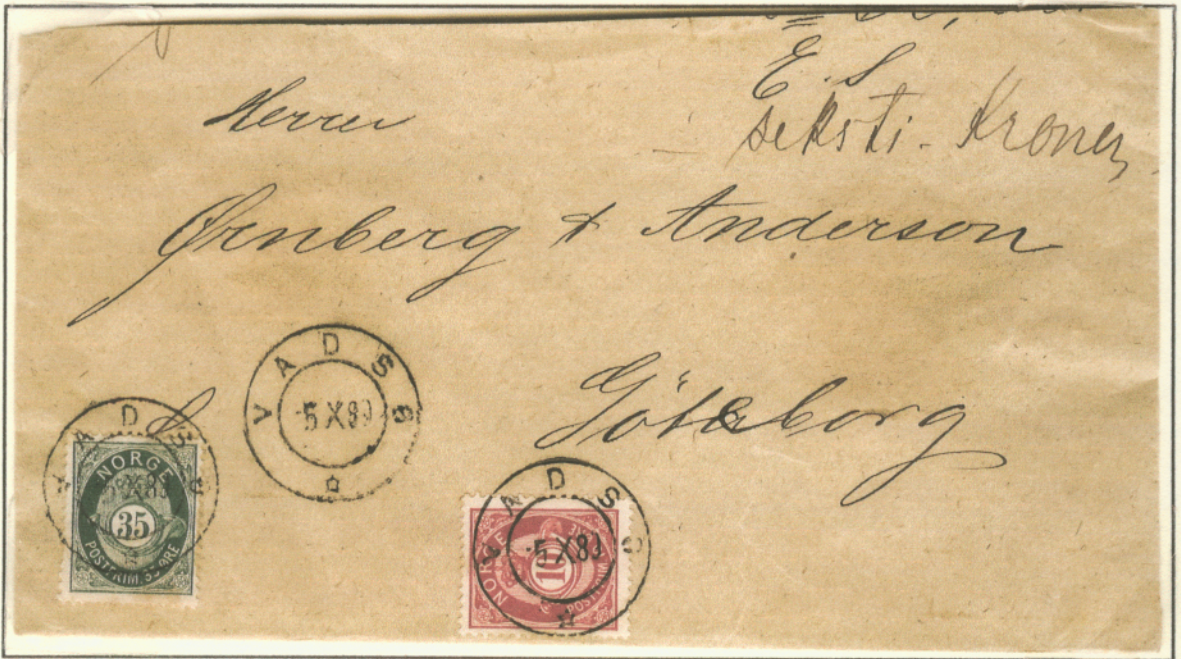 E. S
seksti - Kroner
Herrer
Ørnberg & Anderson
Göteborg
VADSØ
5 X 89
VADSØ
5 X 89
NORGE
35
POSTFRIM. 35 ØRE
VADSØ
5 X 89
NORGE
10
POSTFRIM
ØRE